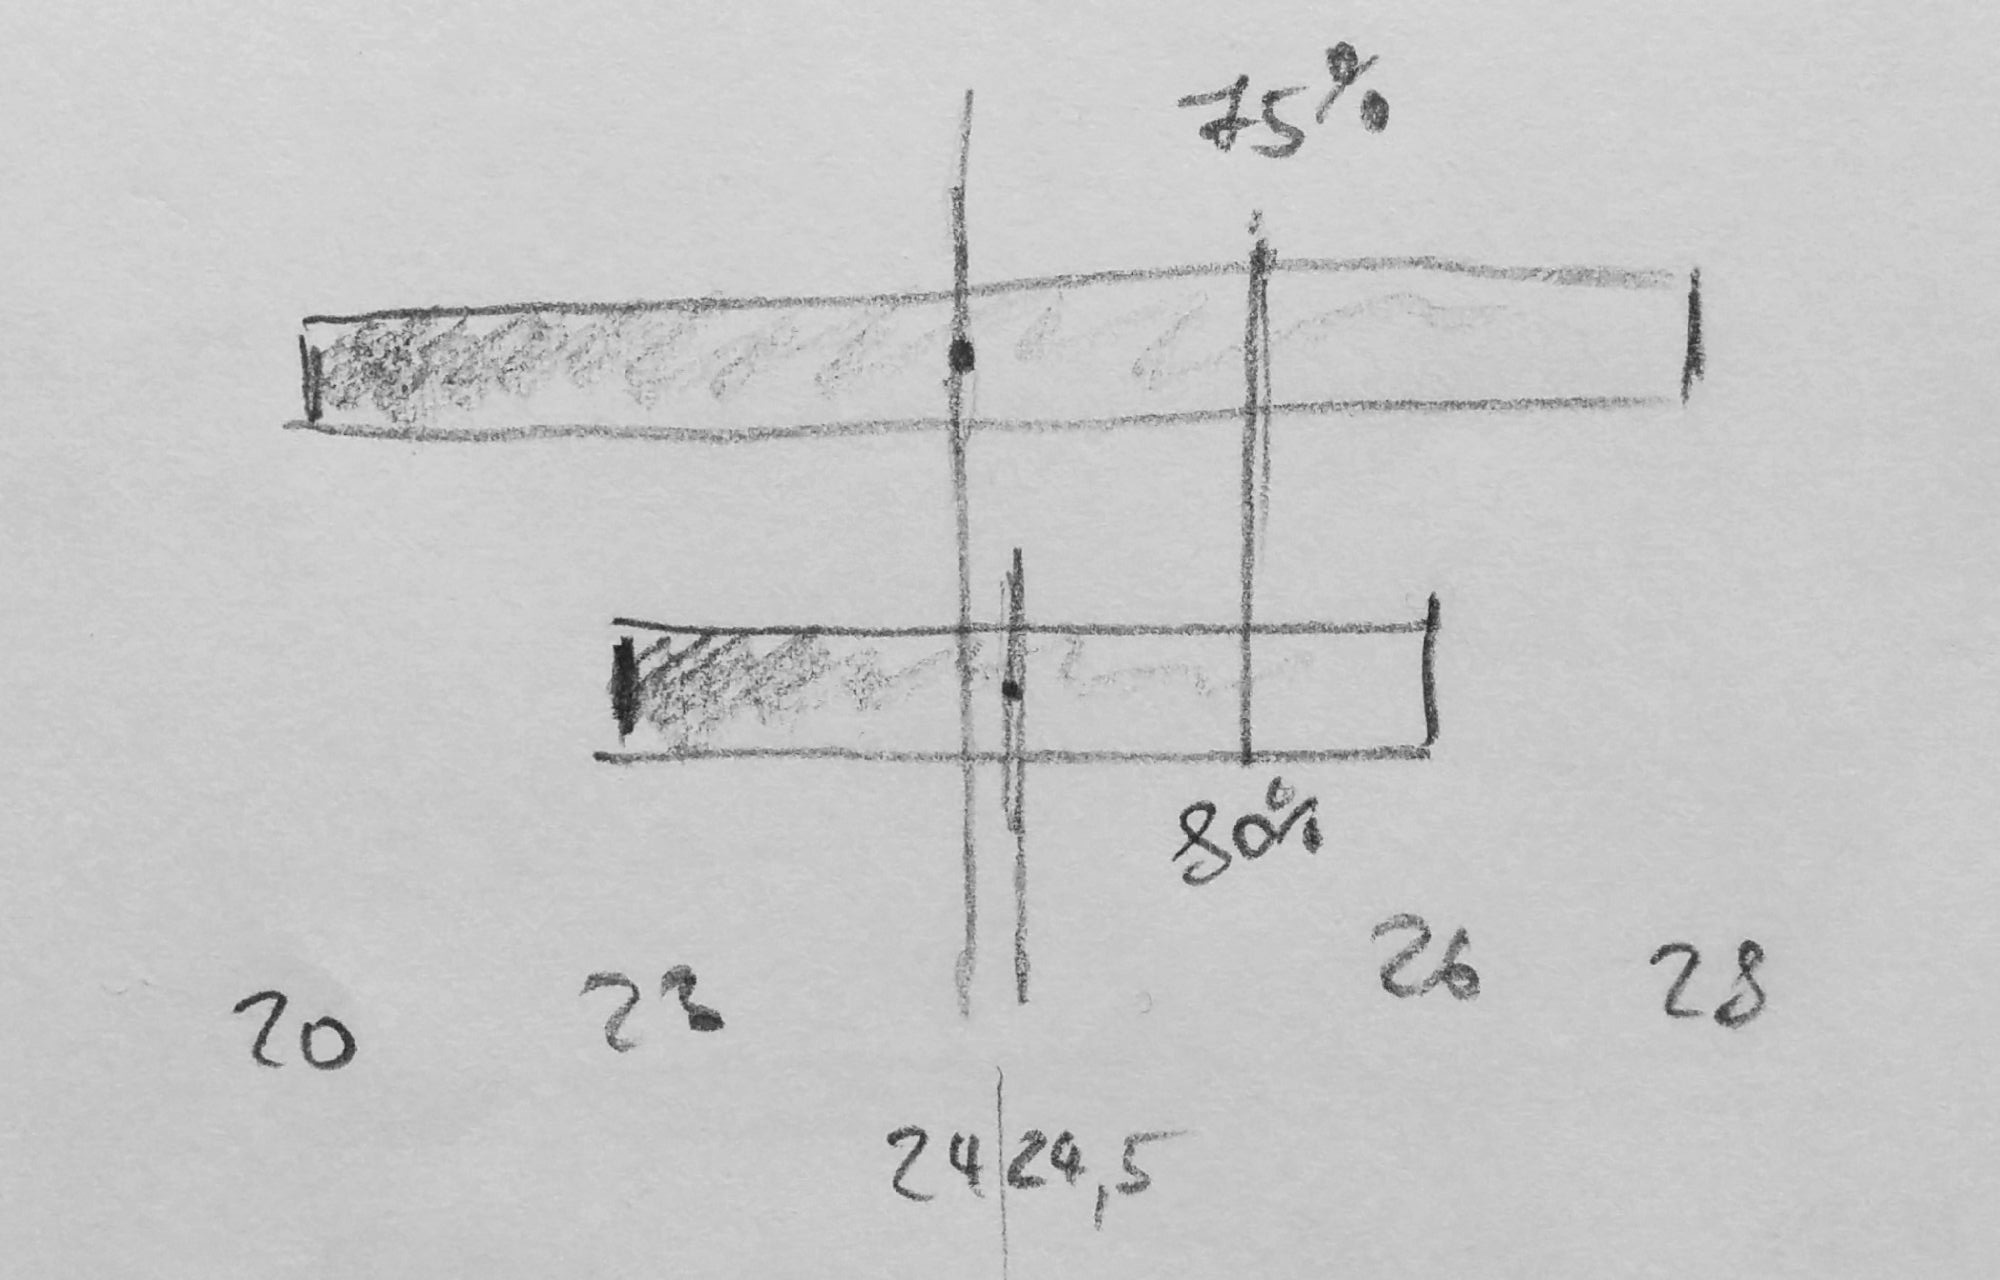 75%
80%
20 23 26 28
24 24,5